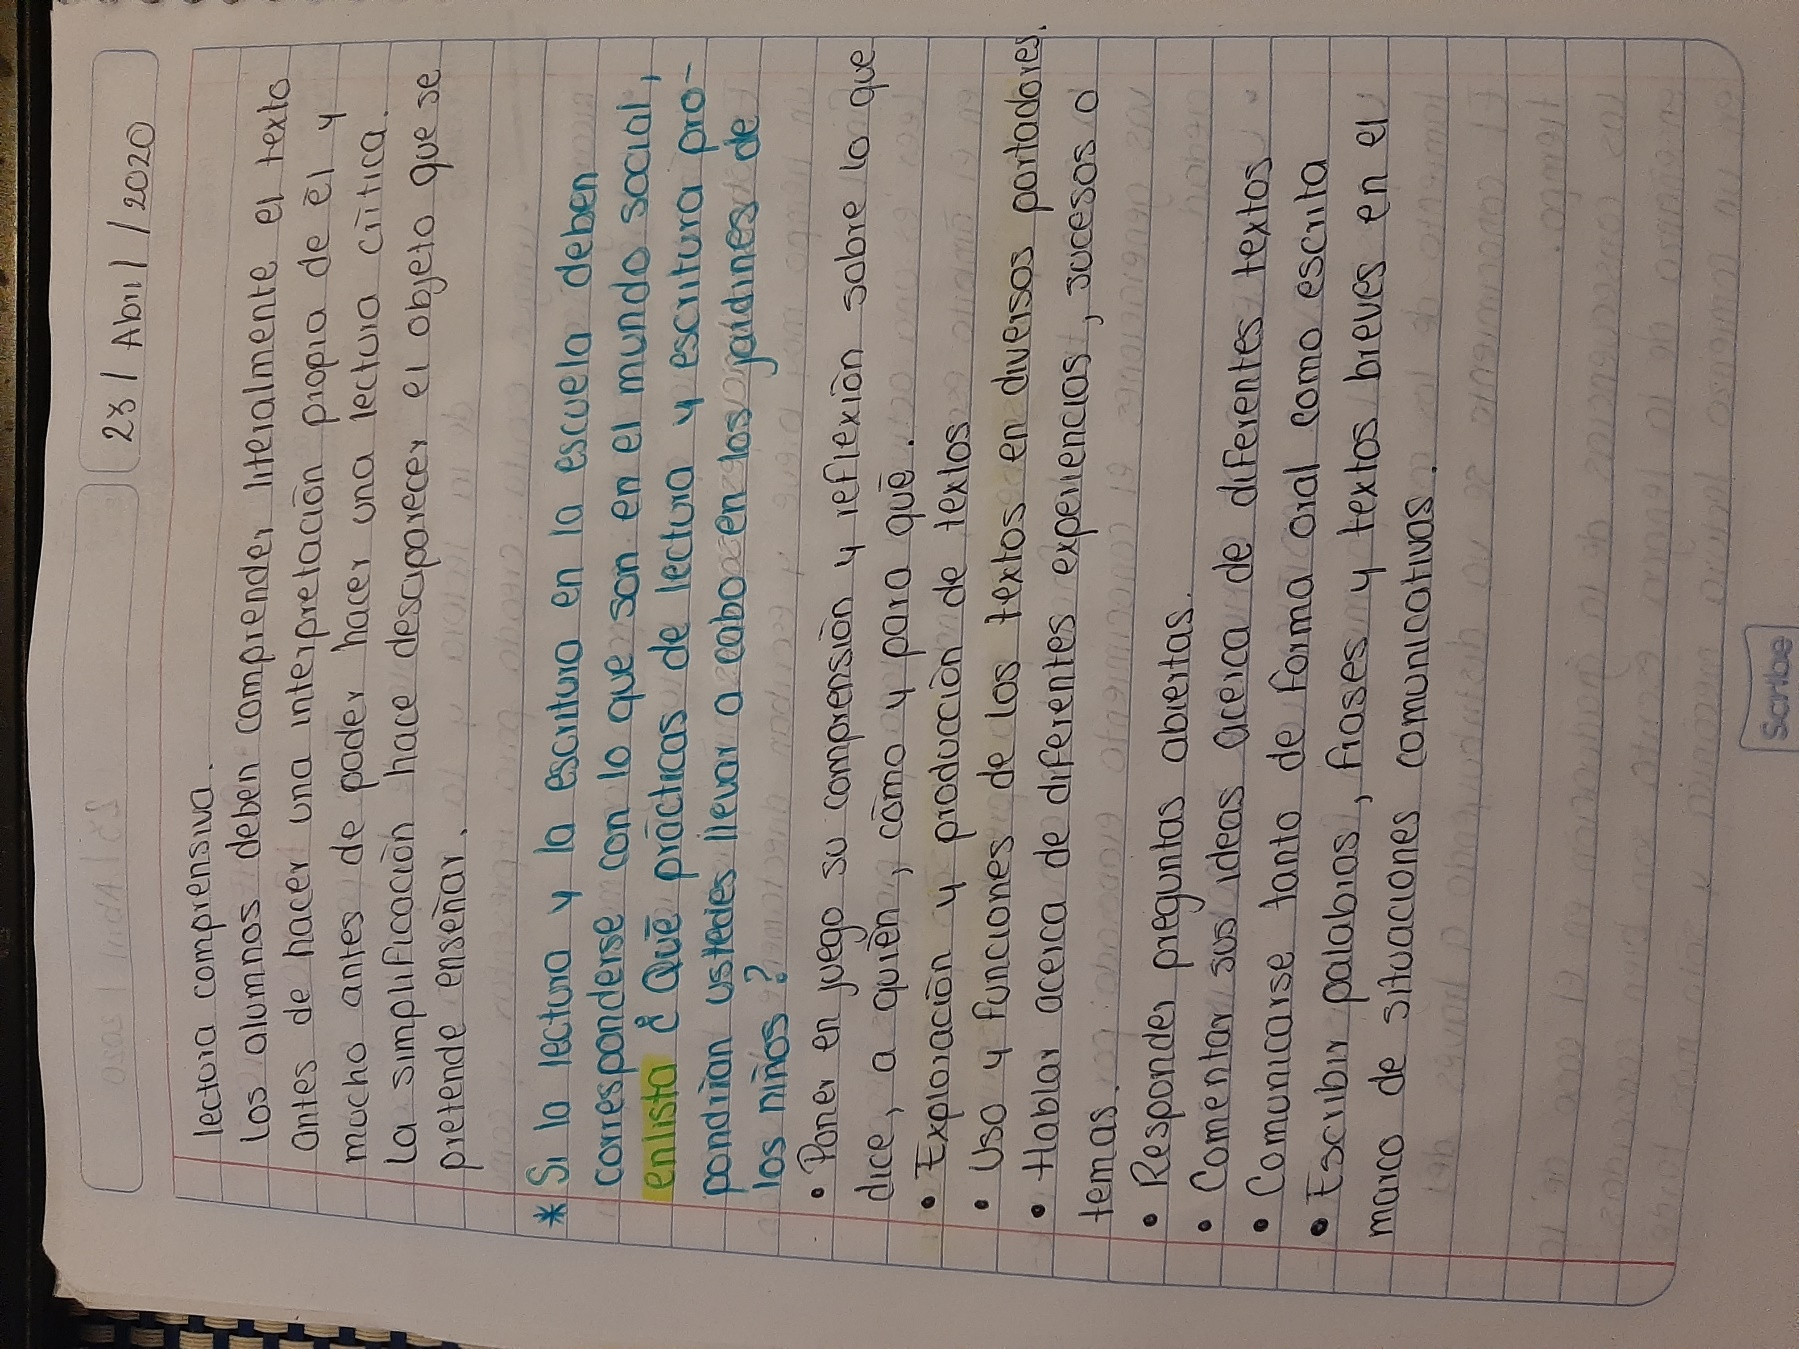 23 / Abril / 2020
lectura comprensiva.
Los alumnos deben comprender literalmente el texto
antes de hacer una interpretación propia de él y
mucho antes de poder hacer una lectura crítica.
La simplificación hace desaparecer el objeto que se
pretende enseñar.
* Si la lectura y la escritura en la escuela deben
corresponderse con lo que son en el mundo social,
enlista ¿Qué prácticas de lectura y escritura pro-
pondrían ustedes llevar a cabo en los jardines de
los niños?
• Poner en juego su comprensión y reflexión sobre lo que
dice, a quién, cómo y para qué.
• Exploración y producción de textos
• Uso y funciones de los textos en diversos portadores.
• Hablar acerca de diferentes experiencias, sucesos o
temas.
• Responder preguntas abiertas.
• Comentar sus ideas acerca de diferentes textos
• Comunicarse tanto de forma oral como escrita
• Escribir palabras, frases y textos breves en el
marco de situaciones comunicativas.
Scribe